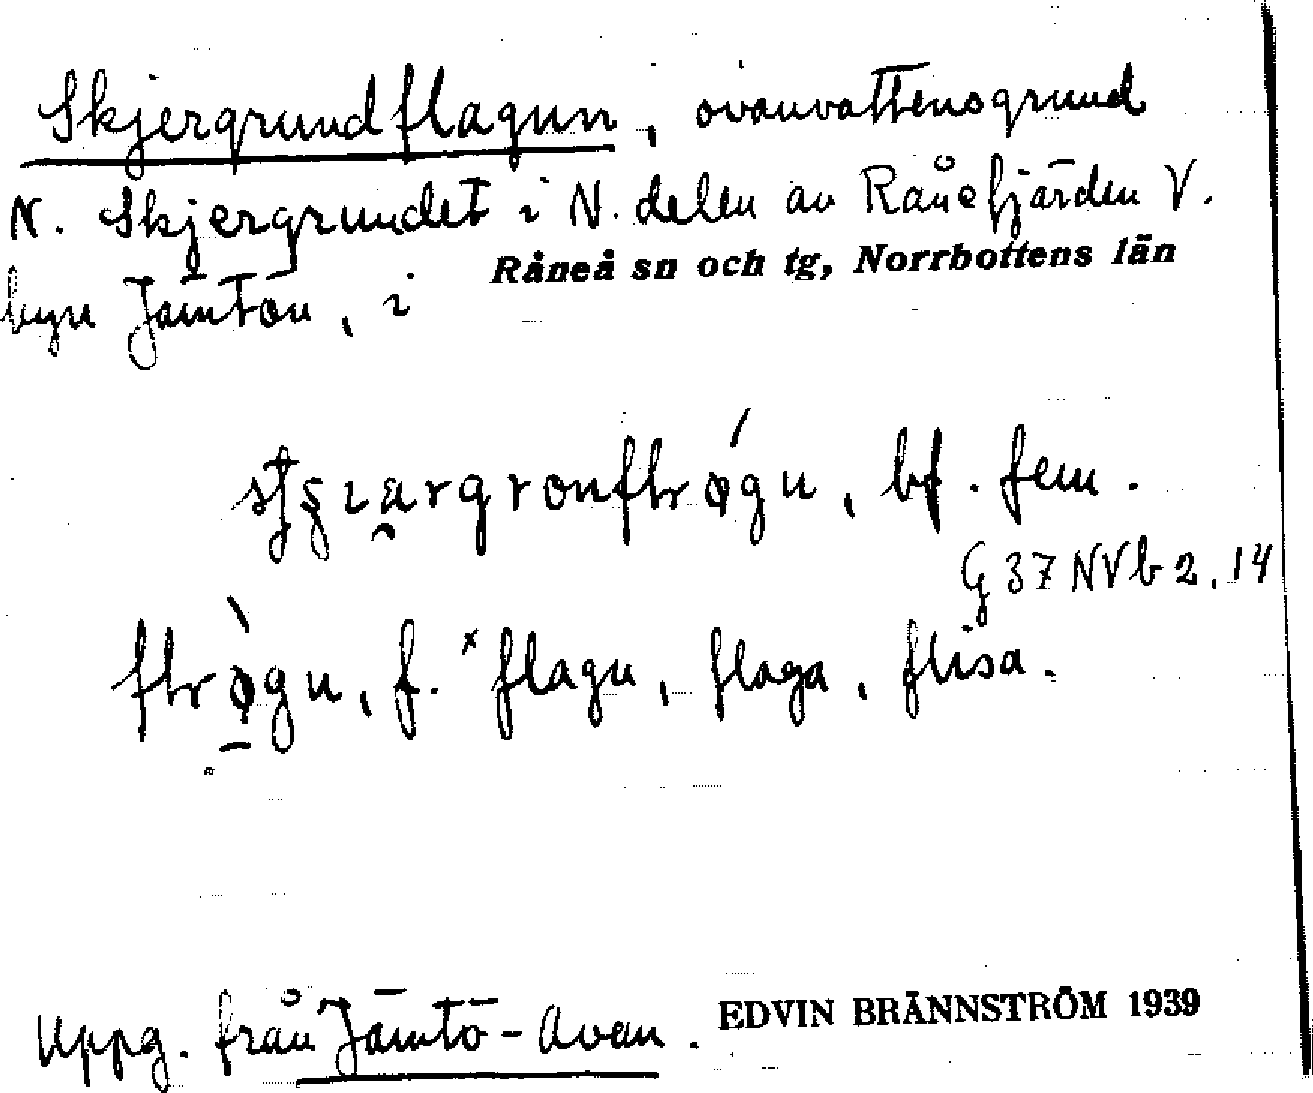 Skjergrundflagun, ovanvattensgrund
N. Skjergrundet i N. delen av Rånefjärden V.
byn Jämtön, i Råneå sn och tg, Norrbottens län
bf. fem.
G 37 NV b 2. 14
f. ˣflagu, flaga, flisa.
Uppg. från Jämtö-Avan. EDVIN BRÄNNSTRÖM 1939